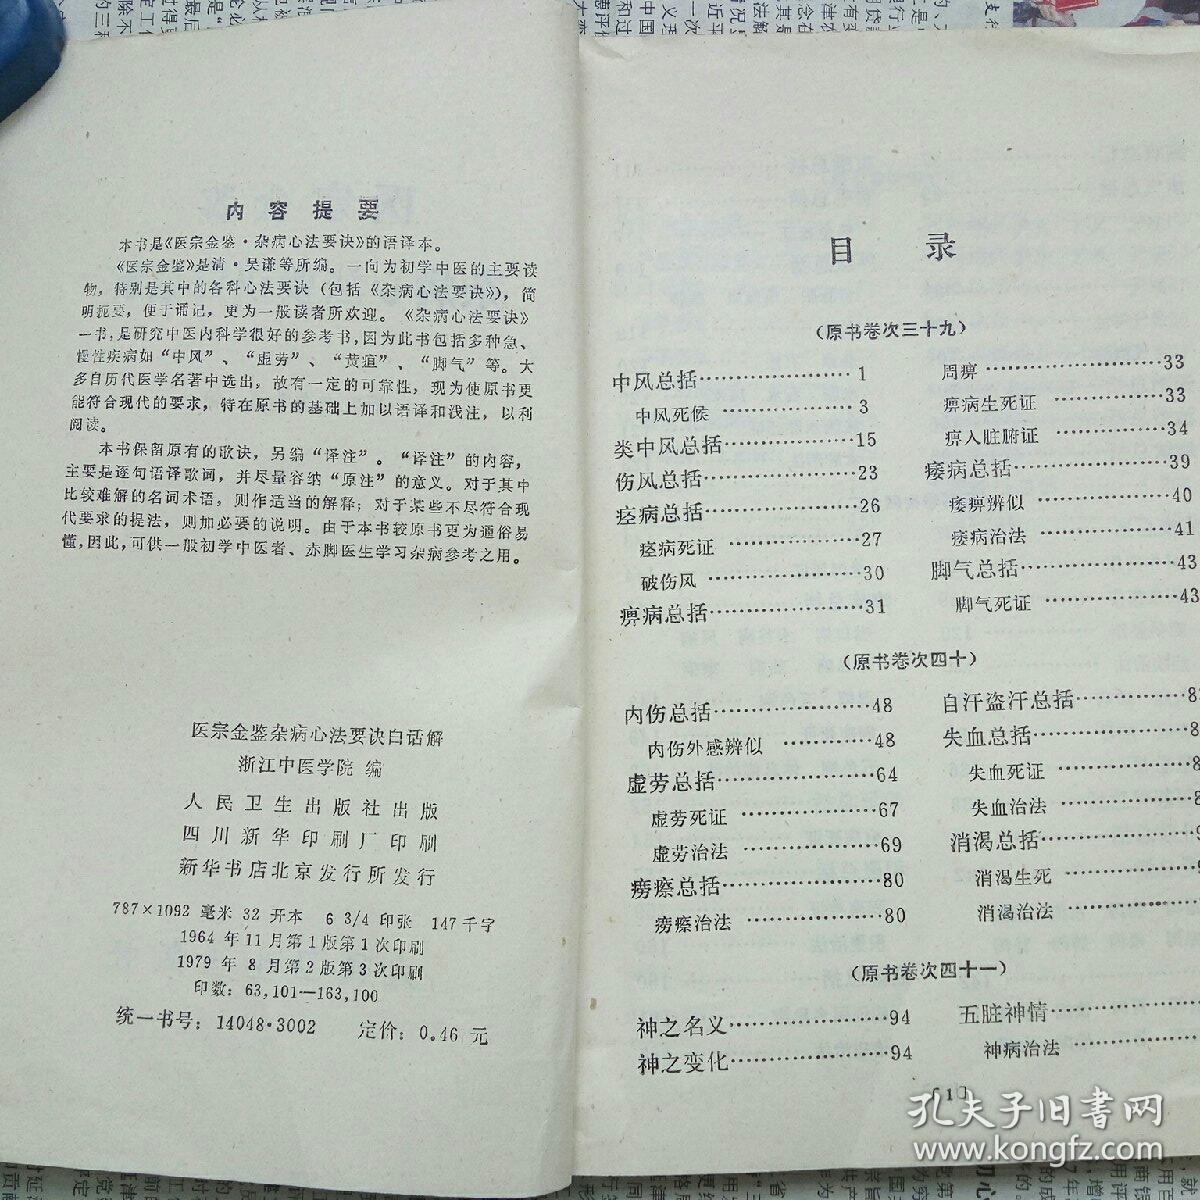 内容提要
本书是《医宗金鉴·杂病心法要诀》的语译本。
《医宗金鉴》是清·吴谦等所编。一向为初学中医的主要读
物，特别是其中的各科心法要诀（包括《杂病心法要诀》），简
明扼要，便于诵记，更为一般读者所欢迎。《杂病心法要诀》
一书，是研究中医内科学很好的参考书，因为此书包括多种急、
慢性疾病如“中风”、“虚劳”、“黄疸”、“脚气”等。大
多自历代医学名著中选出，故有一定的可靠性，现为使原书更
能符合现代的要求，特在原书的基础上加以语译和浅注，以利
阅读。
本书保留原有的歌诀，另编“译注”。“译注”的内容，
主要是逐句语译歌词，并尽量容纳“原注”的意义。对于其中
比较难解的名词术语，则作适当的解释；对于某些不尽符合现
代要求的提法，则加必要的说明。由于本书较原书更为通俗易
懂，因此，可供一般初学中医者、赤脚医生学习杂病参考之用。
医宗金鉴杂病心法要诀白话解
浙江中医学院 编
人民卫生出版社出版
四川新华印刷厂印刷
新华书店北京发行所发行
787×1092 毫米 32 开本 6 3/4 印张 147 千字
1964 年 11 月第 1 版第 1 次印刷
1979 年 8 月第 2 版第 3 次印刷
印数：63,101—163,100
统一书号：14048·3002 定价：0.46 元
目录
（原书卷次三十九）
中风总括……………1
中风死候……………3
类中风总括……………15
伤风总括……………23
痉病总括……………26
痉病死证……………27
破伤风……………30
痹病总括……………31
周痹……………33
痹病生死证……………33
痹入脏腑证……………34
痿病总括……………39
痿痹辨似……………40
痿病治法……………41
脚气总括……………43
脚气死证……………43
（原书卷次四十）
内伤总括……………48
内伤外感辨似……………48
虚劳总括……………64
虚劳死证……………67
虚劳治法……………69
痨瘵总括……………80
痨瘵治法……………80
自汗盗汗总括……………
失血总括……………
失血死证……………
失血治法……………
消渴总括……………
消渴生死……………
消渴治法……………
（原书卷次四十一）
神之名义……………94
神之变化……………94
五脏神情……………
神病治法……………
〔1〕
孔夫子旧书网
www.kongfz.com